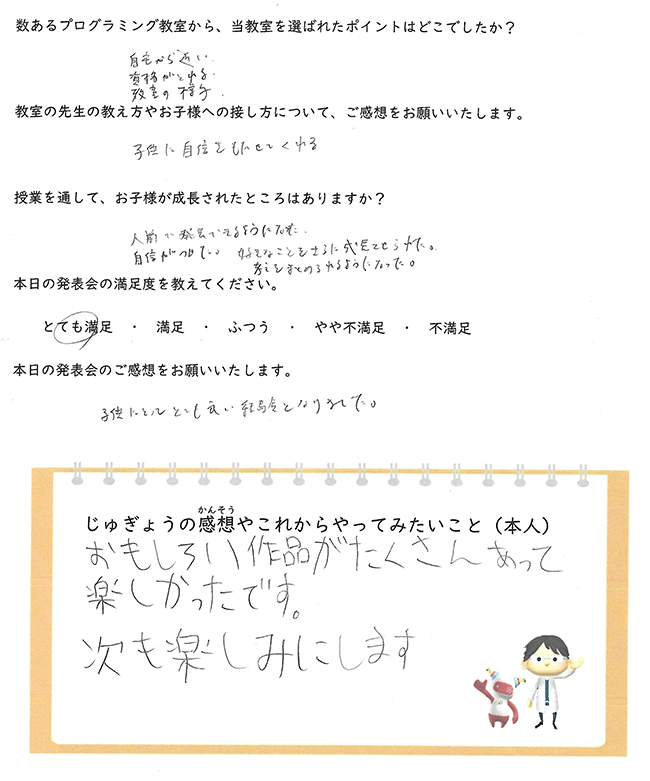 数あるプログラミング教室から、当教室を選ばれたポイントはどこでしたか？
自宅から近い.
資格がとれる.
教室の様子.
教室の先生の教え方やお子様への接し方について、ご感想をお願いいたします。
子供に自信をもたせてくれる
授業を通して、お子様が成長されたところはありますか？
人前で発表できるようになった.
自信がついた。 好きなことをさらに成長させられた。
考えをまとめられるようになった。
本日の発表会の満足度を教えてください。
とても満足 ・ 満足 ・ ふつう ・ やや不満足 ・ 不満足
本日の発表会のご感想をお願いいたします。
子供にとってとても良い経験となりました。
かんそう
じゅぎょうの感想やこれからやってみたいこと（本人）
おもしろい作品がたくさんあって
楽しかったです。
次も楽しみにします